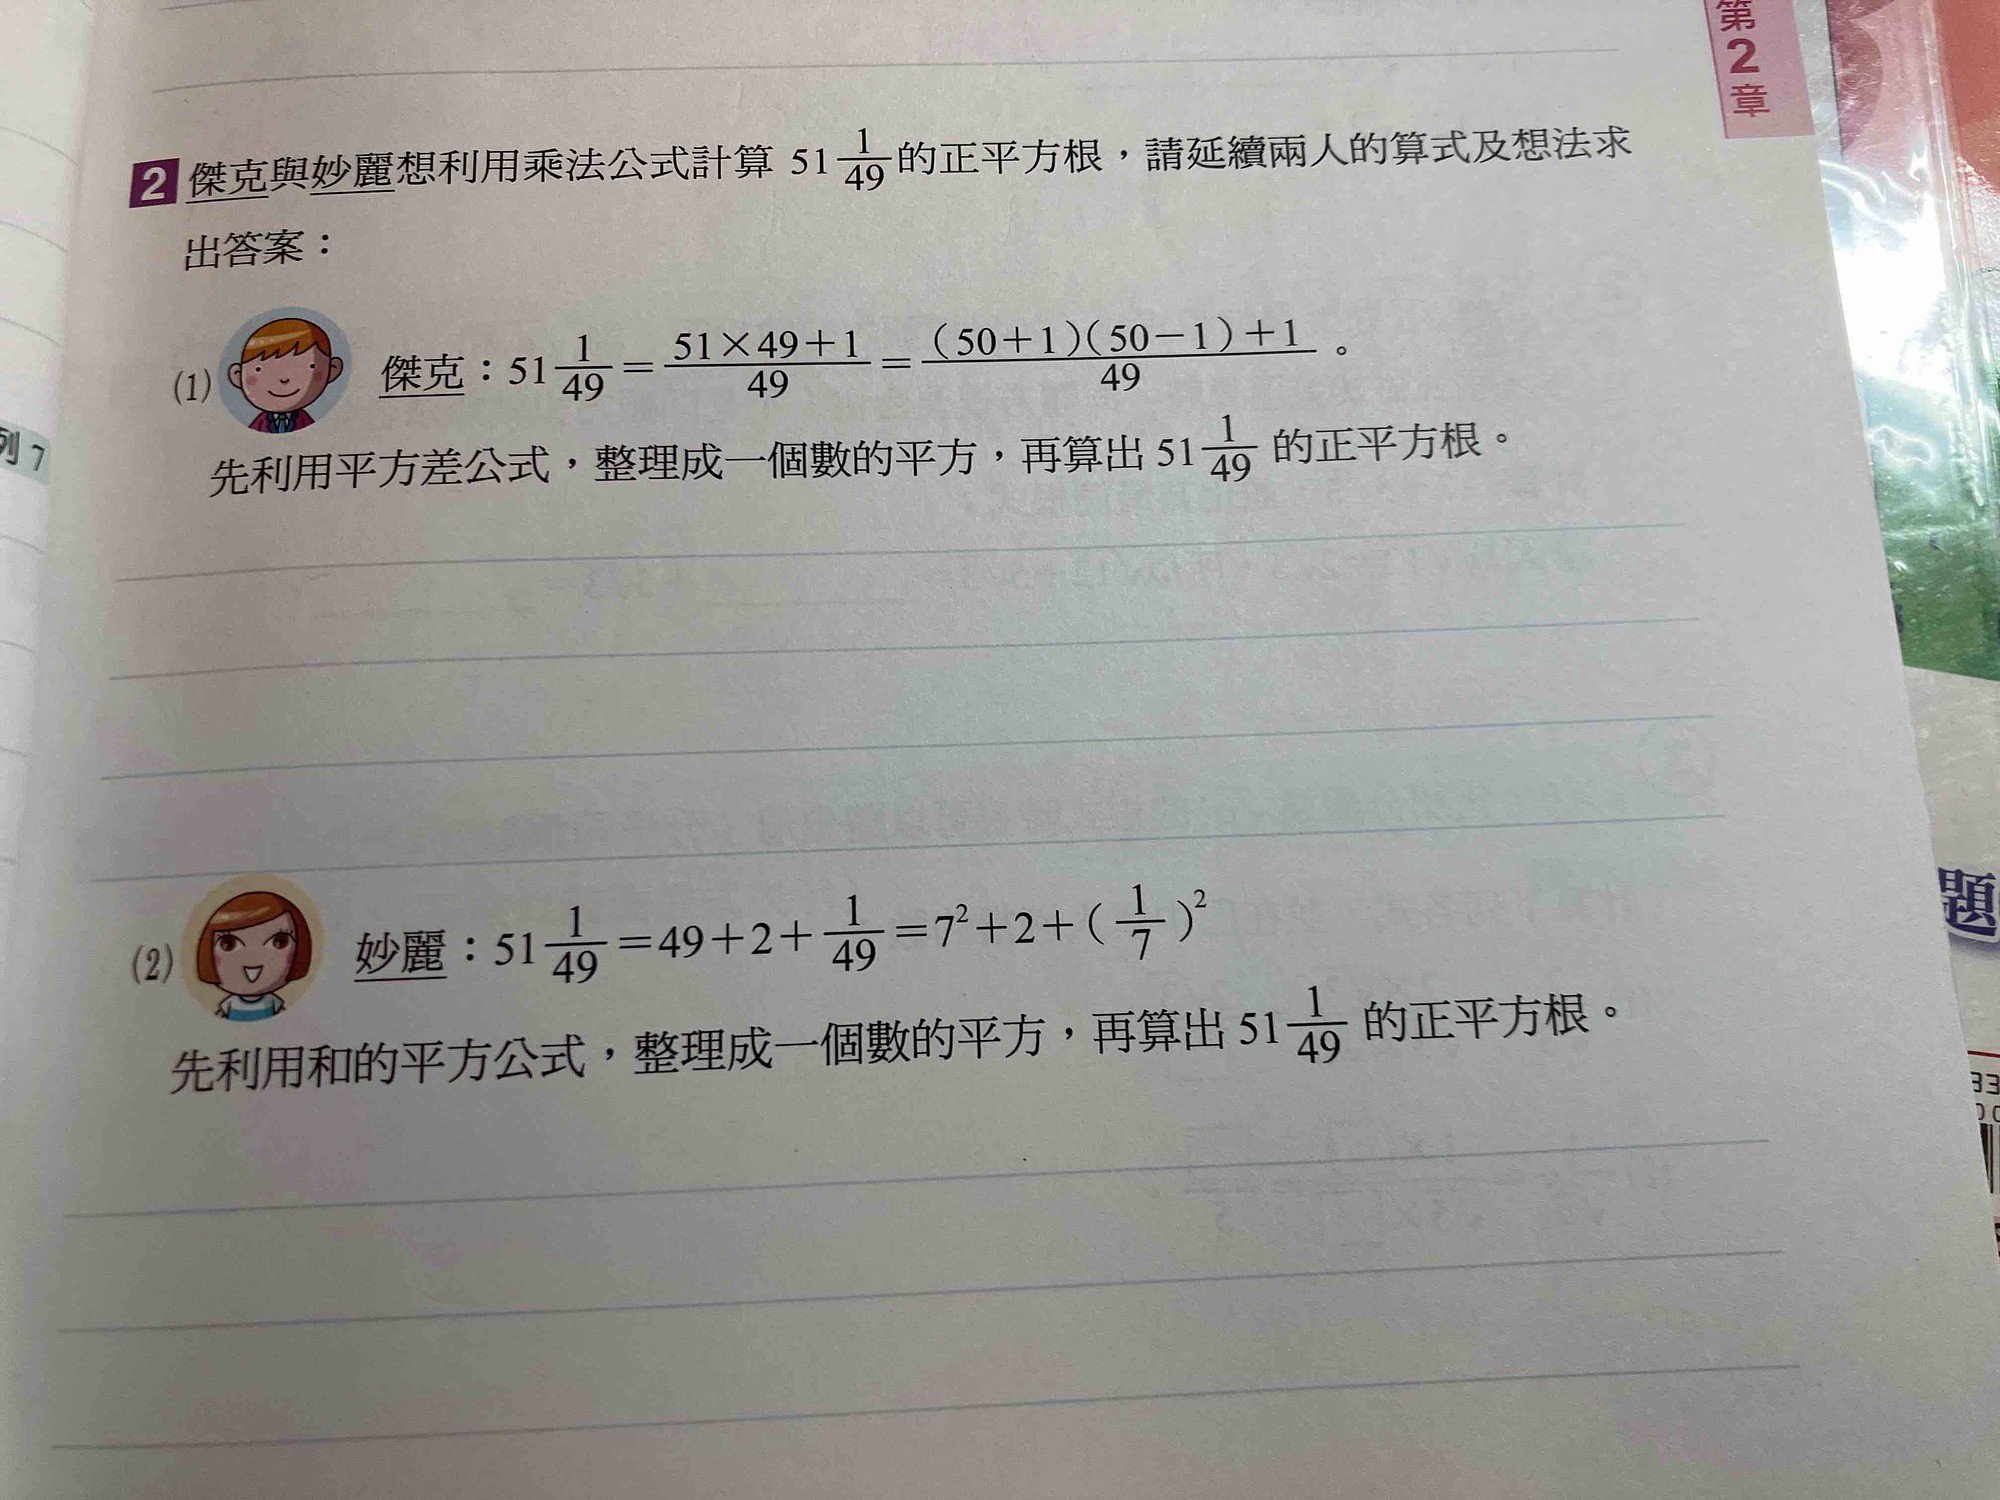 第2章
2 傑克與妙麗想利用乘法公式計算 51 1/49 的正平方根，請延續兩人的算式及想法求
出答案：
(1) 傑克：51 1/49 = (51×49+1)/49 = ((50+1)(50−1)+1)/49 。
先利用平方差公式，整理成一個數的平方，再算出 51 1/49 的正平方根。
列 7
(2) 妙麗：51 1/49 =49+2+ 1/49 =7²+2+( 1/7 )²
先利用和的平方公式，整理成一個數的平方，再算出 51 1/49 的正平方根。
題